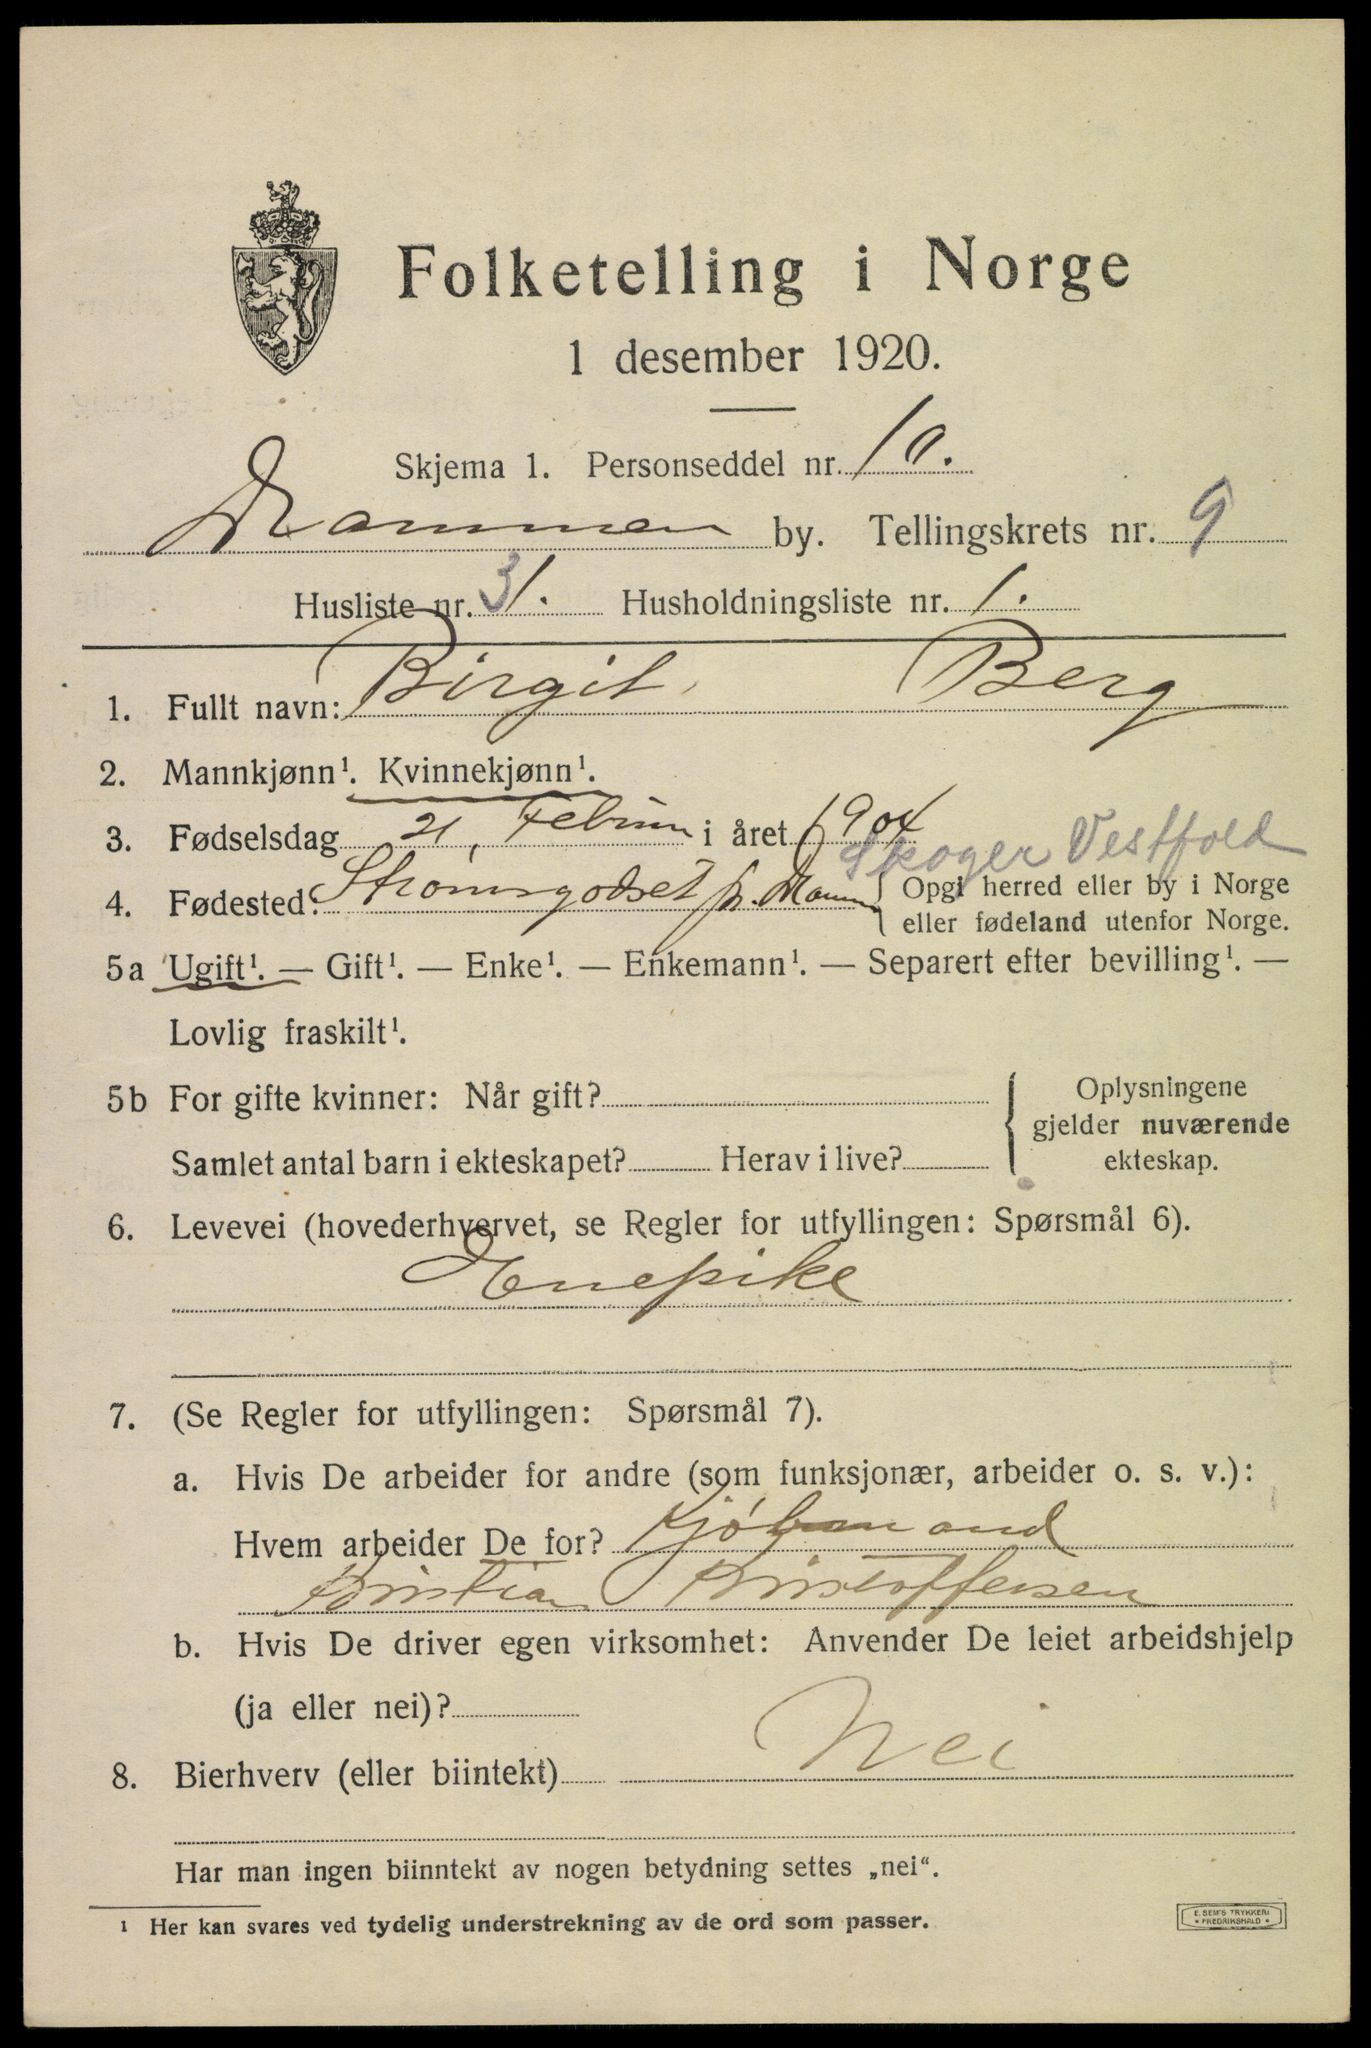 Folketelling i Norge
1 desember 1920.
Skjema 1. Personseddel nr. 10.
Drammen by. Tellingskrets nr. 9
Husliste nr. 31. Husholdningsliste nr. 1.
1. Fullt navn: Birgit Berg
2. Mannkjønn¹. Kvinnekjønn¹.
3. Fødselsdag 21, Februar i året 1904
Skoger Vestfold
4. Fødested: Strömsgodset pr. Dramm { Opgi herred eller by i Norge
eller fødeland utenfor Norge.
5a Ugift¹. — Gift¹. — Enke¹. — Enkemann¹. — Separert efter bevilling¹. —
Lovlig fraskilt¹.
5b For gifte kvinner: Når gift?
Samlet antal barn i ekteskapet? Herav i live?
Oplysningene
gjelder nuværende
ekteskap.
6. Levevei (hovederhvervet, se Regler for utfyllingen: Spørsmål 6).
Enepike
7. (Se Regler for utfyllingen: Spørsmål 7).
a. Hvis De arbeider for andre (som funksjonær, arbeider o. s. v.):
Hvem arbeider De for? Kjöbmand
Kristian Kristoffersen
b. Hvis De driver egen virksomhet: Anvender De leiet arbeidshjelp
(ja eller nei)?
8. Bierhverv (eller biintekt) Nei
Har man ingen biinntekt av nogen betydning settes „nei“.
¹ Her kan svares ved tydelig understrekning av de ord som passer.
E. SEM'S TRYKKERI
* FREDRIKSHALD *